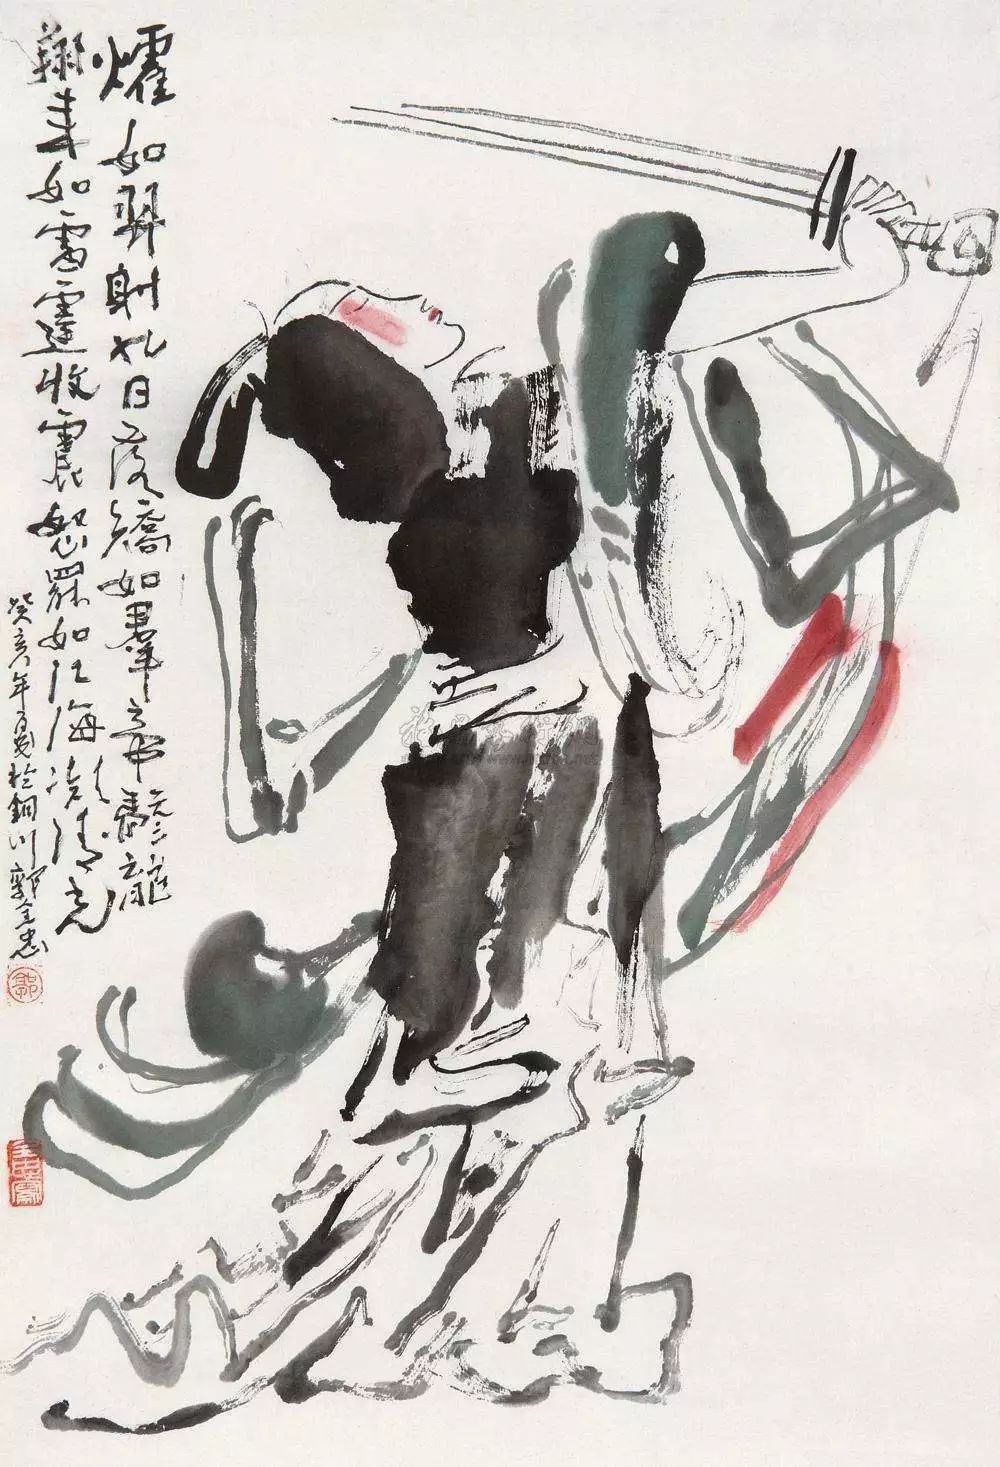 㸌如羿射九日落矯如羣帝驂龍
翔来如雷霆收震怒罷如江海凝清光
癸亥年夏於銅川郭全忠
郭
全忠寫